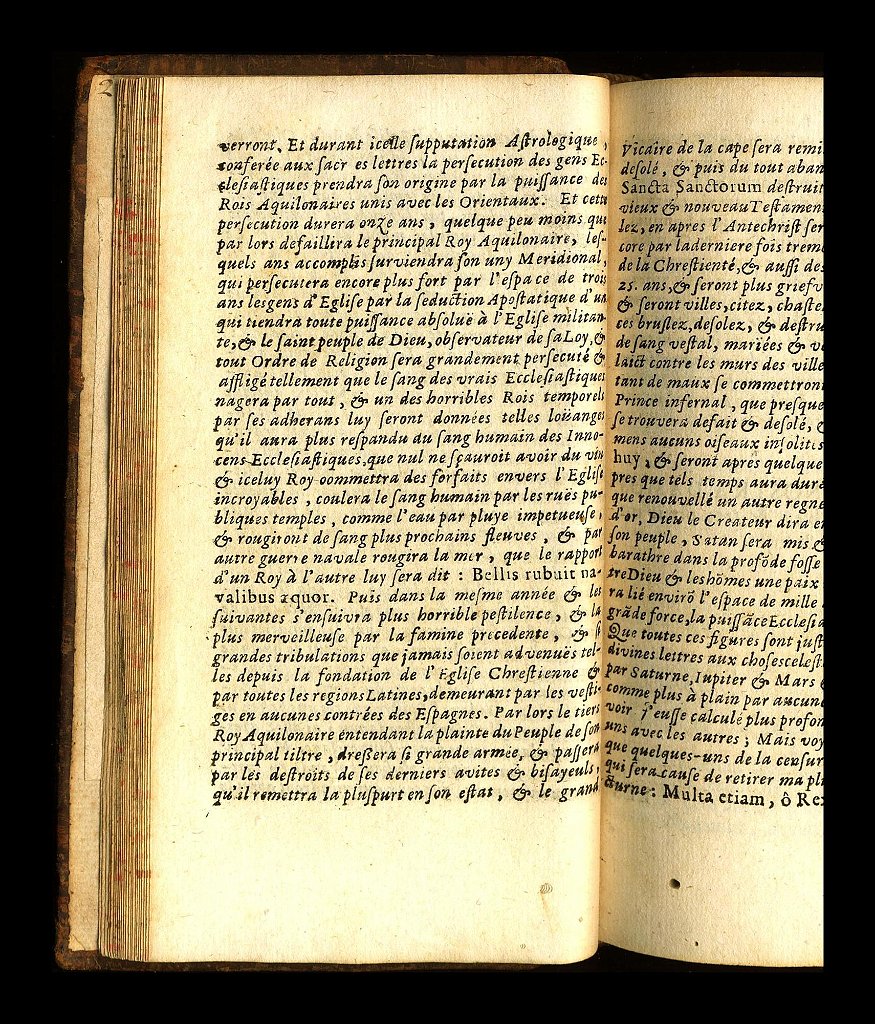 2
verront. Et durant icelle ſupputation Aſtrologique,
conferée aux ſacr es lettres la perſecution des gens Ec-
cleſiaſtiques prendra ſon origine par la puiſſance des
Rois Aquilonaires unis avec les Orientaux. Et cette
perſecution durera onze ans, quelque peu moins que
par lors defaillira le principal Roy Aquilonaire, leſ-
quels ans accomplis ſurviendra ſon uny Meridional,
qui perſecutera encore plus fort par l'eſpace de trois
ans lesgens d'Egliſe par la ſeduction Apoſtatique d'un
qui tiendra toute puiſſance abſoluë à l'Egliſe militan-
te,& le ſaint peuple de Dieu, obſervateur de ſaLoy,&
tout Ordre de Religion ſera grandement perſecuté &
affligé tellement que le ſang des vrais Eccleſiaſtiques
nagera par tout, & un des horribles Rois temporels
par ſes adherans luy ſeront données telles loüanges
qu'il aura plus reſpandu du ſang humain des Inno-
cens Eccleſiaſtiques,que nul ne ſçauroit avoir du vin
& iceluy Roy oommettra des forfaits envers l'Egliſe
incroyables, coulera le ſang humain par les ruës pu-
bliques temples, comme l'eau par pluye impetueuſe,
& rougiront de ſang plus prochains fleuves, & par
autre guerre navale rougira la mer, que le rapport
d'un Roy à l'autre luy ſera dit : Bellis rubuit na-
valibus æquor. Puis dans la meſme année & les
ſuivantes s'enſuivra plus horrible peſtilence, & la
plus merveilleuſe par la famine precedente, & ſi
grandes tribulations que jamais ſoient advenuës tel-
les depuis la fondation de l'Egliſe Chreſtienne &
par toutes les regions Latines,demeurant par les veſti-
ges en aucunes contrées des Eſpagnes. Par lors le tiers
Roy Aquilonaire entendant la plainte du Peuple de ſon
principal tiltre, dreſſera ſi grande armée, & paſſera
par les deſtroits de ſes derniers avites & biſayeuls,
qu'il remettra la pluſpurt en ſon eſtat, & le grand
Vicaire de la cape ſera remi
deſolé, & puis du tout aban
Sancta Sanctorum deſtruit
vieux & nouveau Teſtamen
lez, en apres l'Antechriſt ſer
core par laderniere fois trem
de la Chreſtienté,& auſſi des
25. ans,& ſeront plus griefv
& ſeront villes, citez, chaſte
ces bruſlez,deſolez, & deſtru
de ſang veſtal, mariées & v
laict contre les murs des ville
tant de maux ſe commettront
Prince infernal, que preſque
ſe trouvera defait & deſolé,
mens aucuns oiſeaux inſolites
huy, & ſeront apres quelque
pres que tels temps aura duré
que renouvellé un autre regne
d'or, Dieu le Createur dira en
ſon peuple, Satan ſera mis &
barathre dans la profõde foſſe
tre Dieu & les hõmes une paix
ra lié envirõ l'eſpace de mille
grãde force,la puiſſãce Eccleſia
Que toutes ces figures ſont juſt
divines lettres aux choſes celeſt
par Saturne, Iupiter & Mars
comme plus à plain par aucune
voir j'euſſe calculé plus profon
uns avec les autres ; Mais voy
que quelques-uns de la cenſur
qui ſera cauſe de retirer ma pl
cturne : Multa etiam, ô Rex